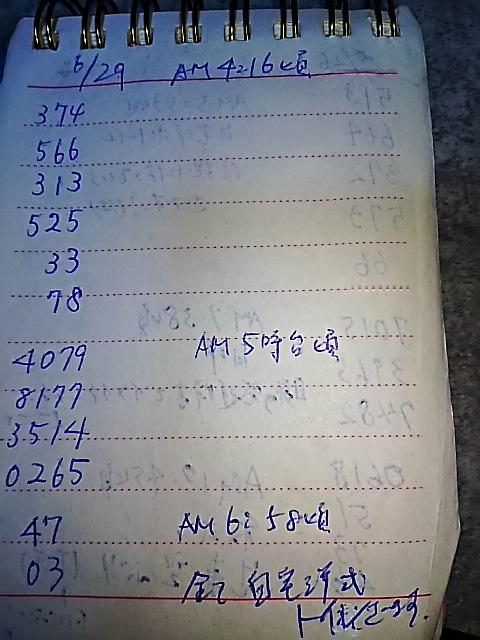 6/29 AM 4:16頃
374
566
313
525
33
78
AM 5時台頃
4079
8177
3514
0265
AM 6:58頃
47
03
全て自宅洋式
トイレ